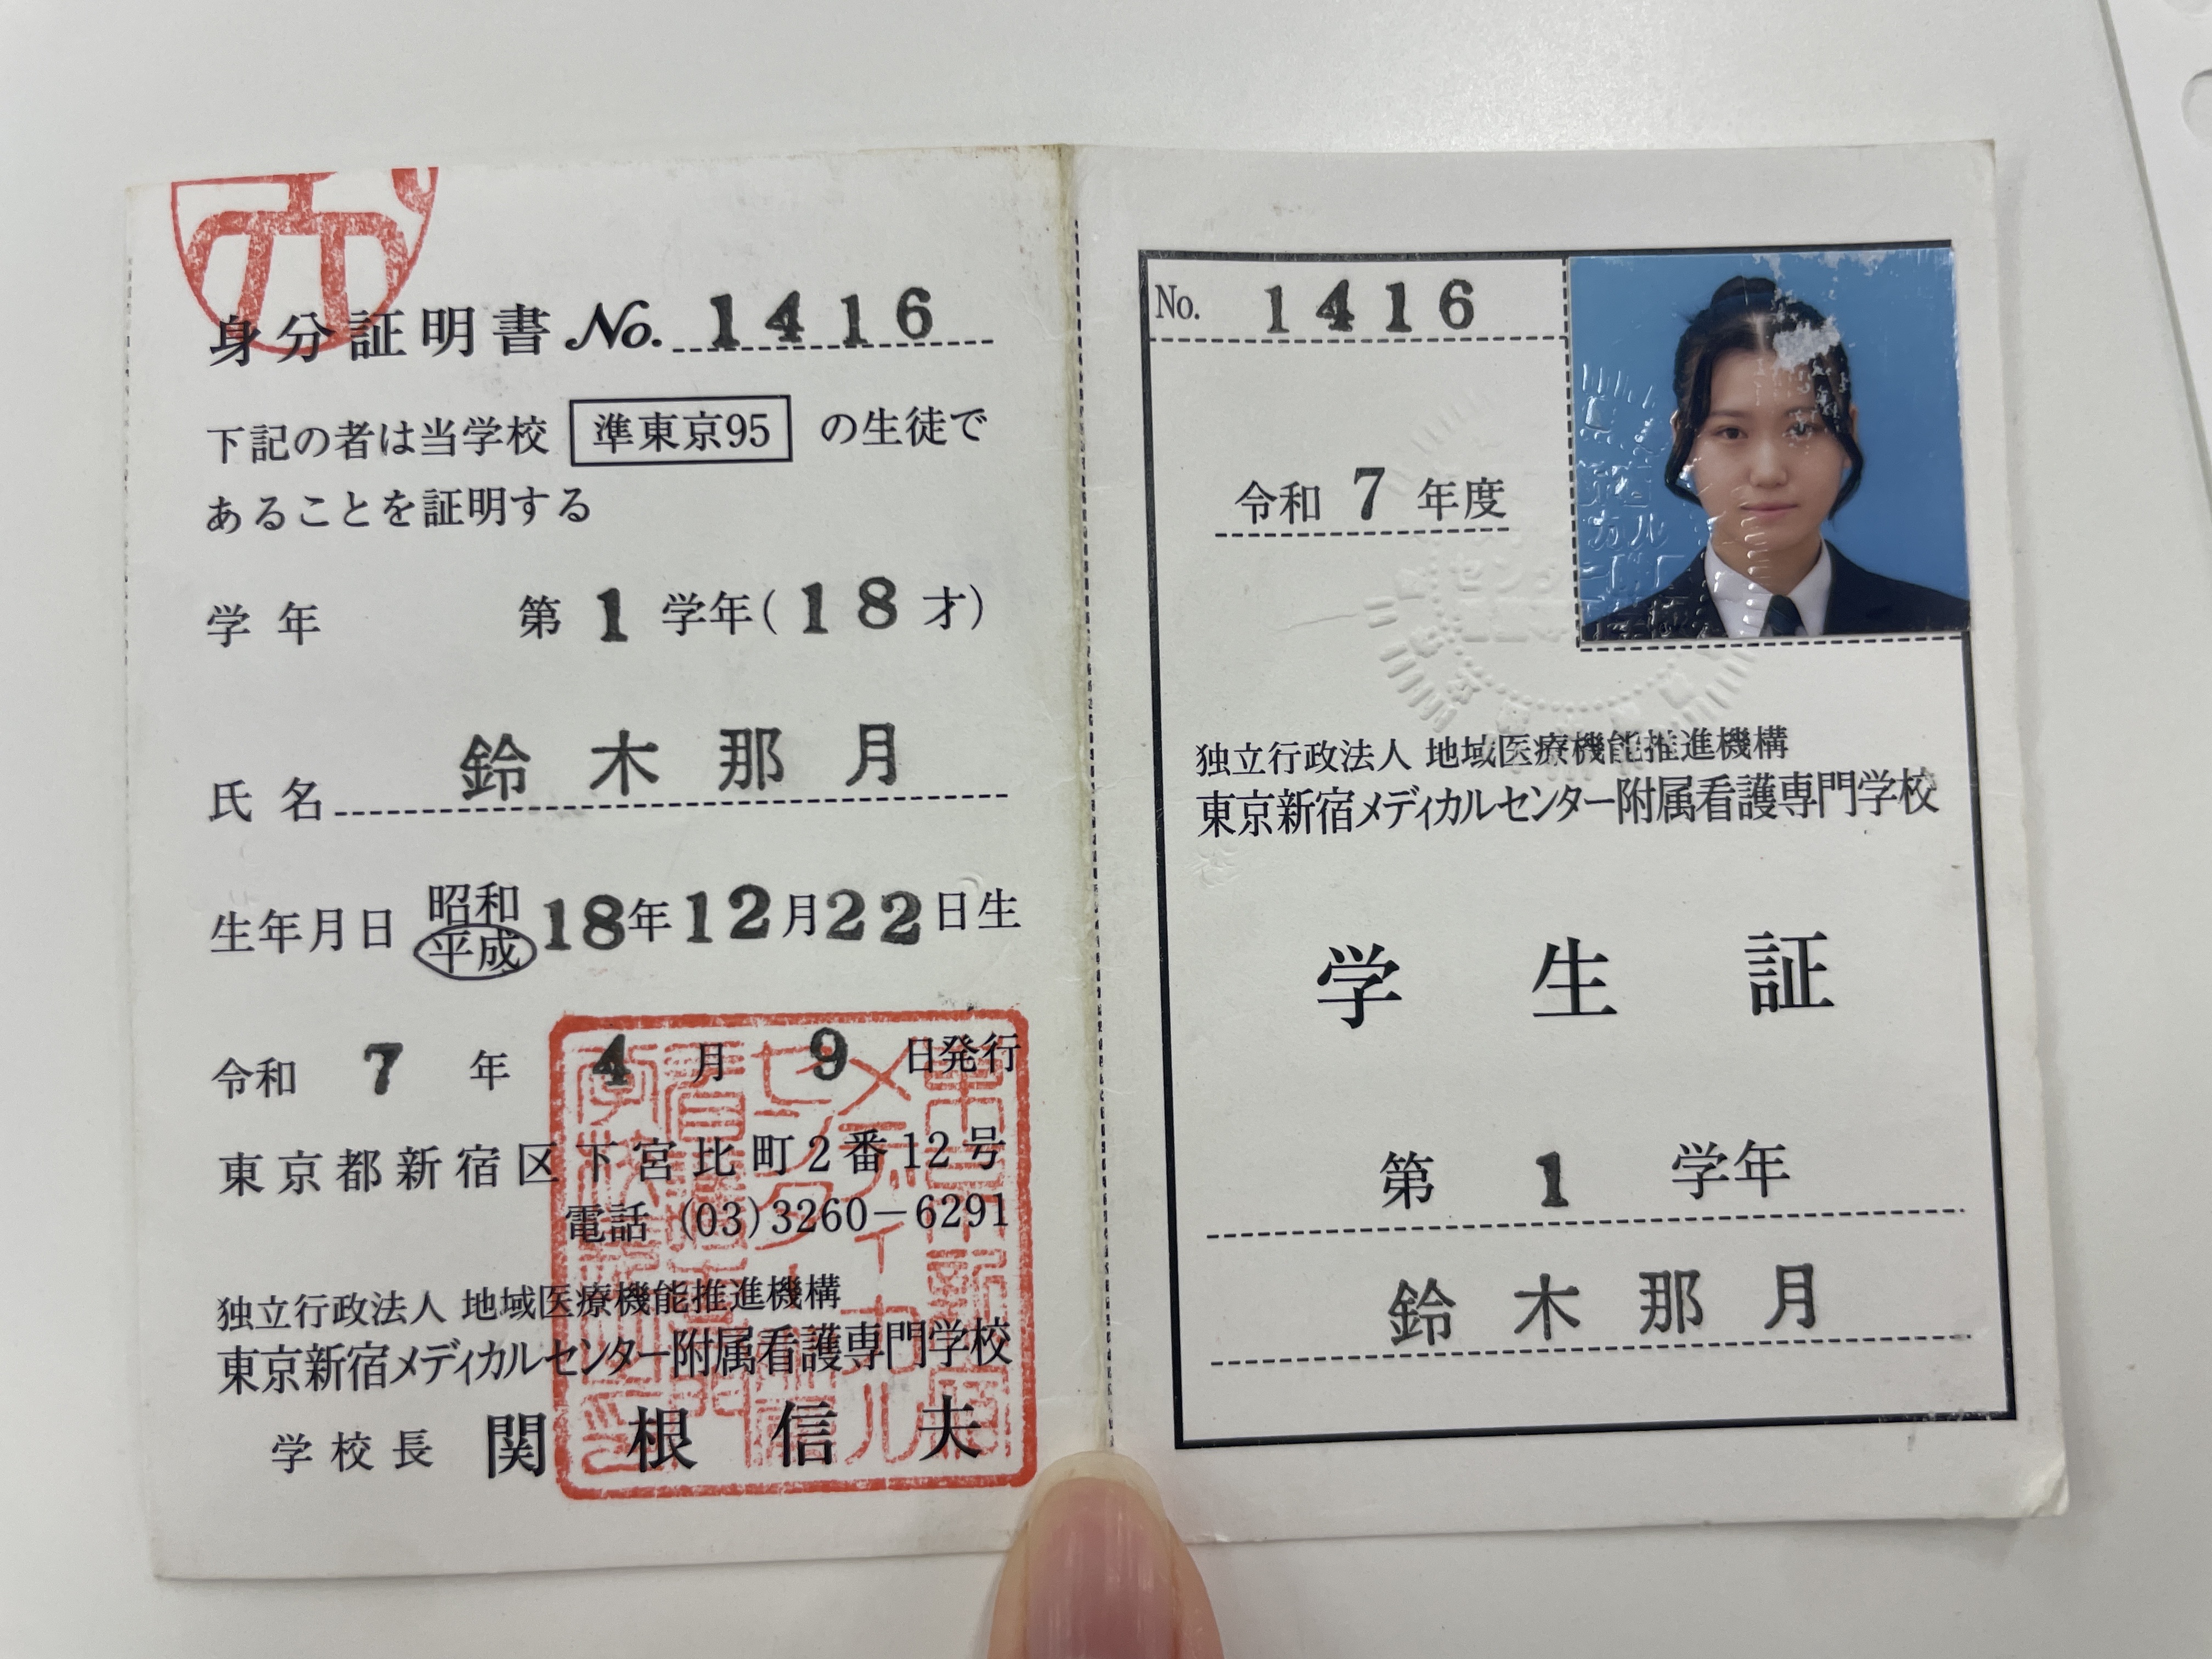 身分証明書 No. 1416
下記の者は当学校 準東京95 の生徒で
あることを証明する
学年 第 1 学年(18才)
氏名 鈴木那月
生年月日 昭和 平成 18年12月22日生
令和 7 年 4 月 9 日発行
東京都新宿区下宮比町2番12号
電話 (03)3260－6291
独立行政法人 地域医療機能推進機構
東京新宿メディカルセンター附属看護専門学校
学校長 関根信夫
No. 1416
令和 7 年度
独立行政法人 地域医療機能推進機構
東京新宿メディカルセンター附属看護専門学校
学生証
第 1 学年
鈴木那月